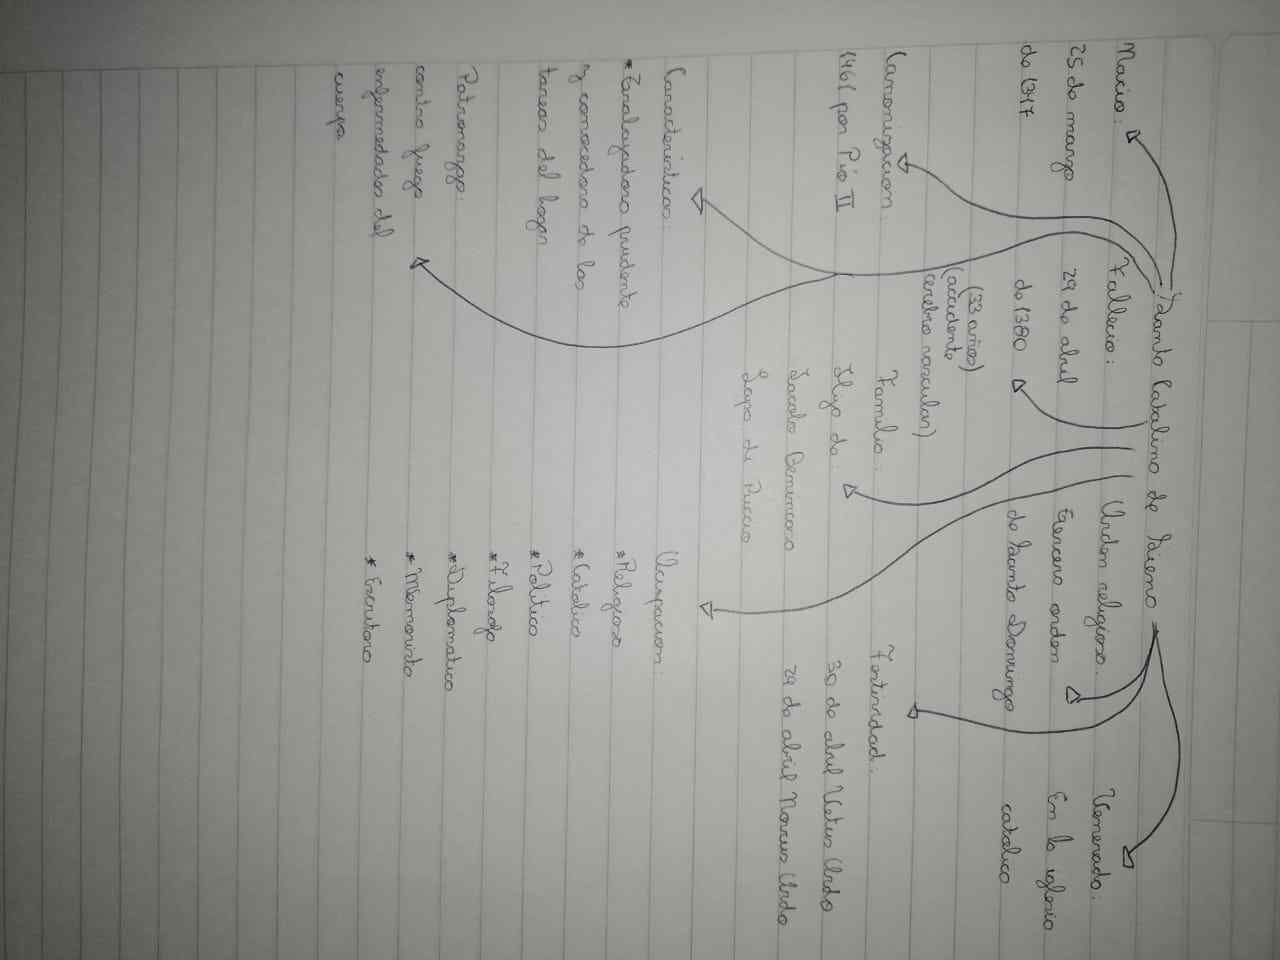 Santa Catalina de Siena
Nacio:
25 de marzo
de 1347
Fallecio:
29 de abril
de 1380
(33 años)
(accidente
cerebro vascular)
Orden religiosa:
Tercera orden
de Santo Domingo
Venerada:
En la iglesia
catolica
Canonizacion:
1461 por Pio II
Familia:
Hija de:
Iacobo Benincasa
Lapa di Puccio
Festividad:
30 de abril Vetus Ordo
29 de abril Novus Ordo
Caracteristicas:
*Trabajadora prudente
y conocedora de las
tareas del hogar
Ocupacion:
*Religiosa
*Catolica
*Politica
*Filosofa
*Diplomatica
*Memorista
*Escritora
Patronazgo:
contra fuego
enfermedades del
cuerpo